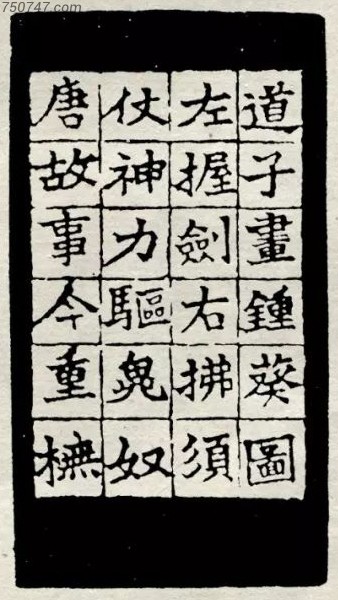 750747.com
道子畫鍾葵圖
左握劍右拂須
仗神力驅鬼奴
唐故事今重橅